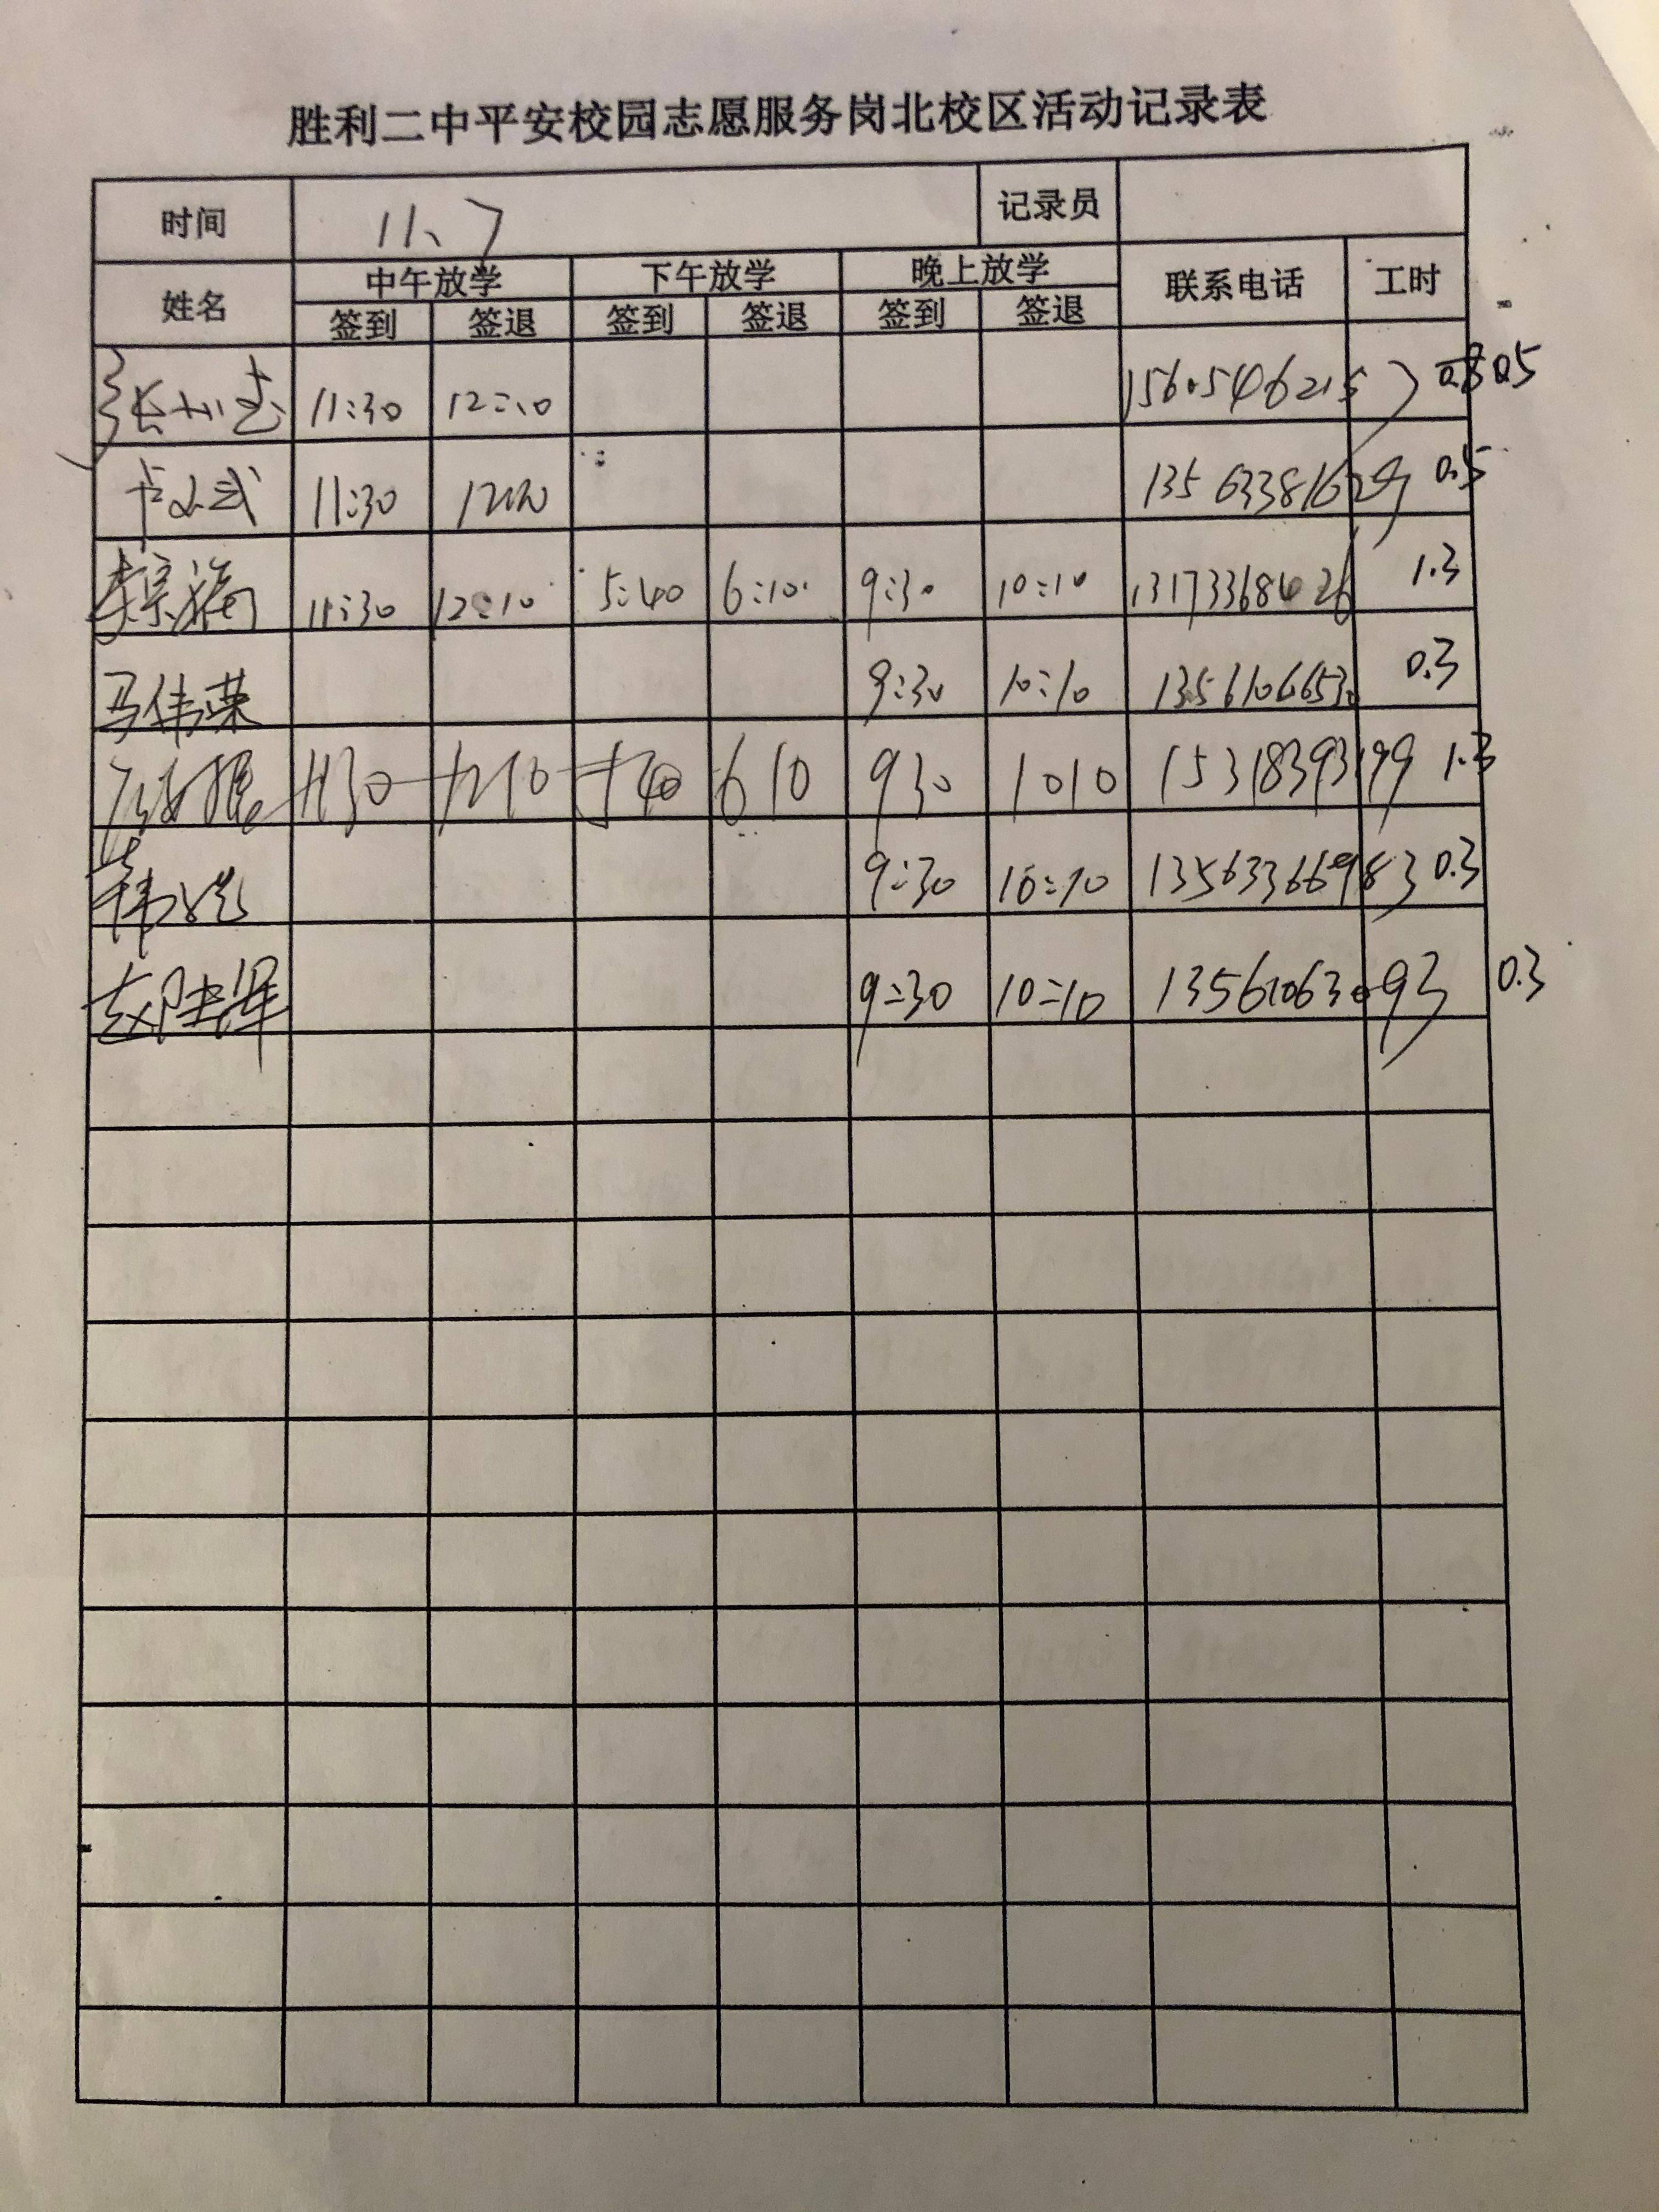 胜利二中平安校园志愿服务岗北校区活动记录表
时间 11、7 记录员
姓名 中午放学 下午放学 晚上放学 联系电话 工时
签到 签退 签到 签退 签到 签退
11:30 0.5
11:30 0.5
11:30 12:10 5:40 6:10 9:30 10:10 13173368426 1.3
马伟荣 9:30 10:10 13561066530 0.3
1130 1210 540 610 930 1010 15318393199 1.3
9:30 10:10 13563366983 0.3
9:30 10:10 13561063093 0.3